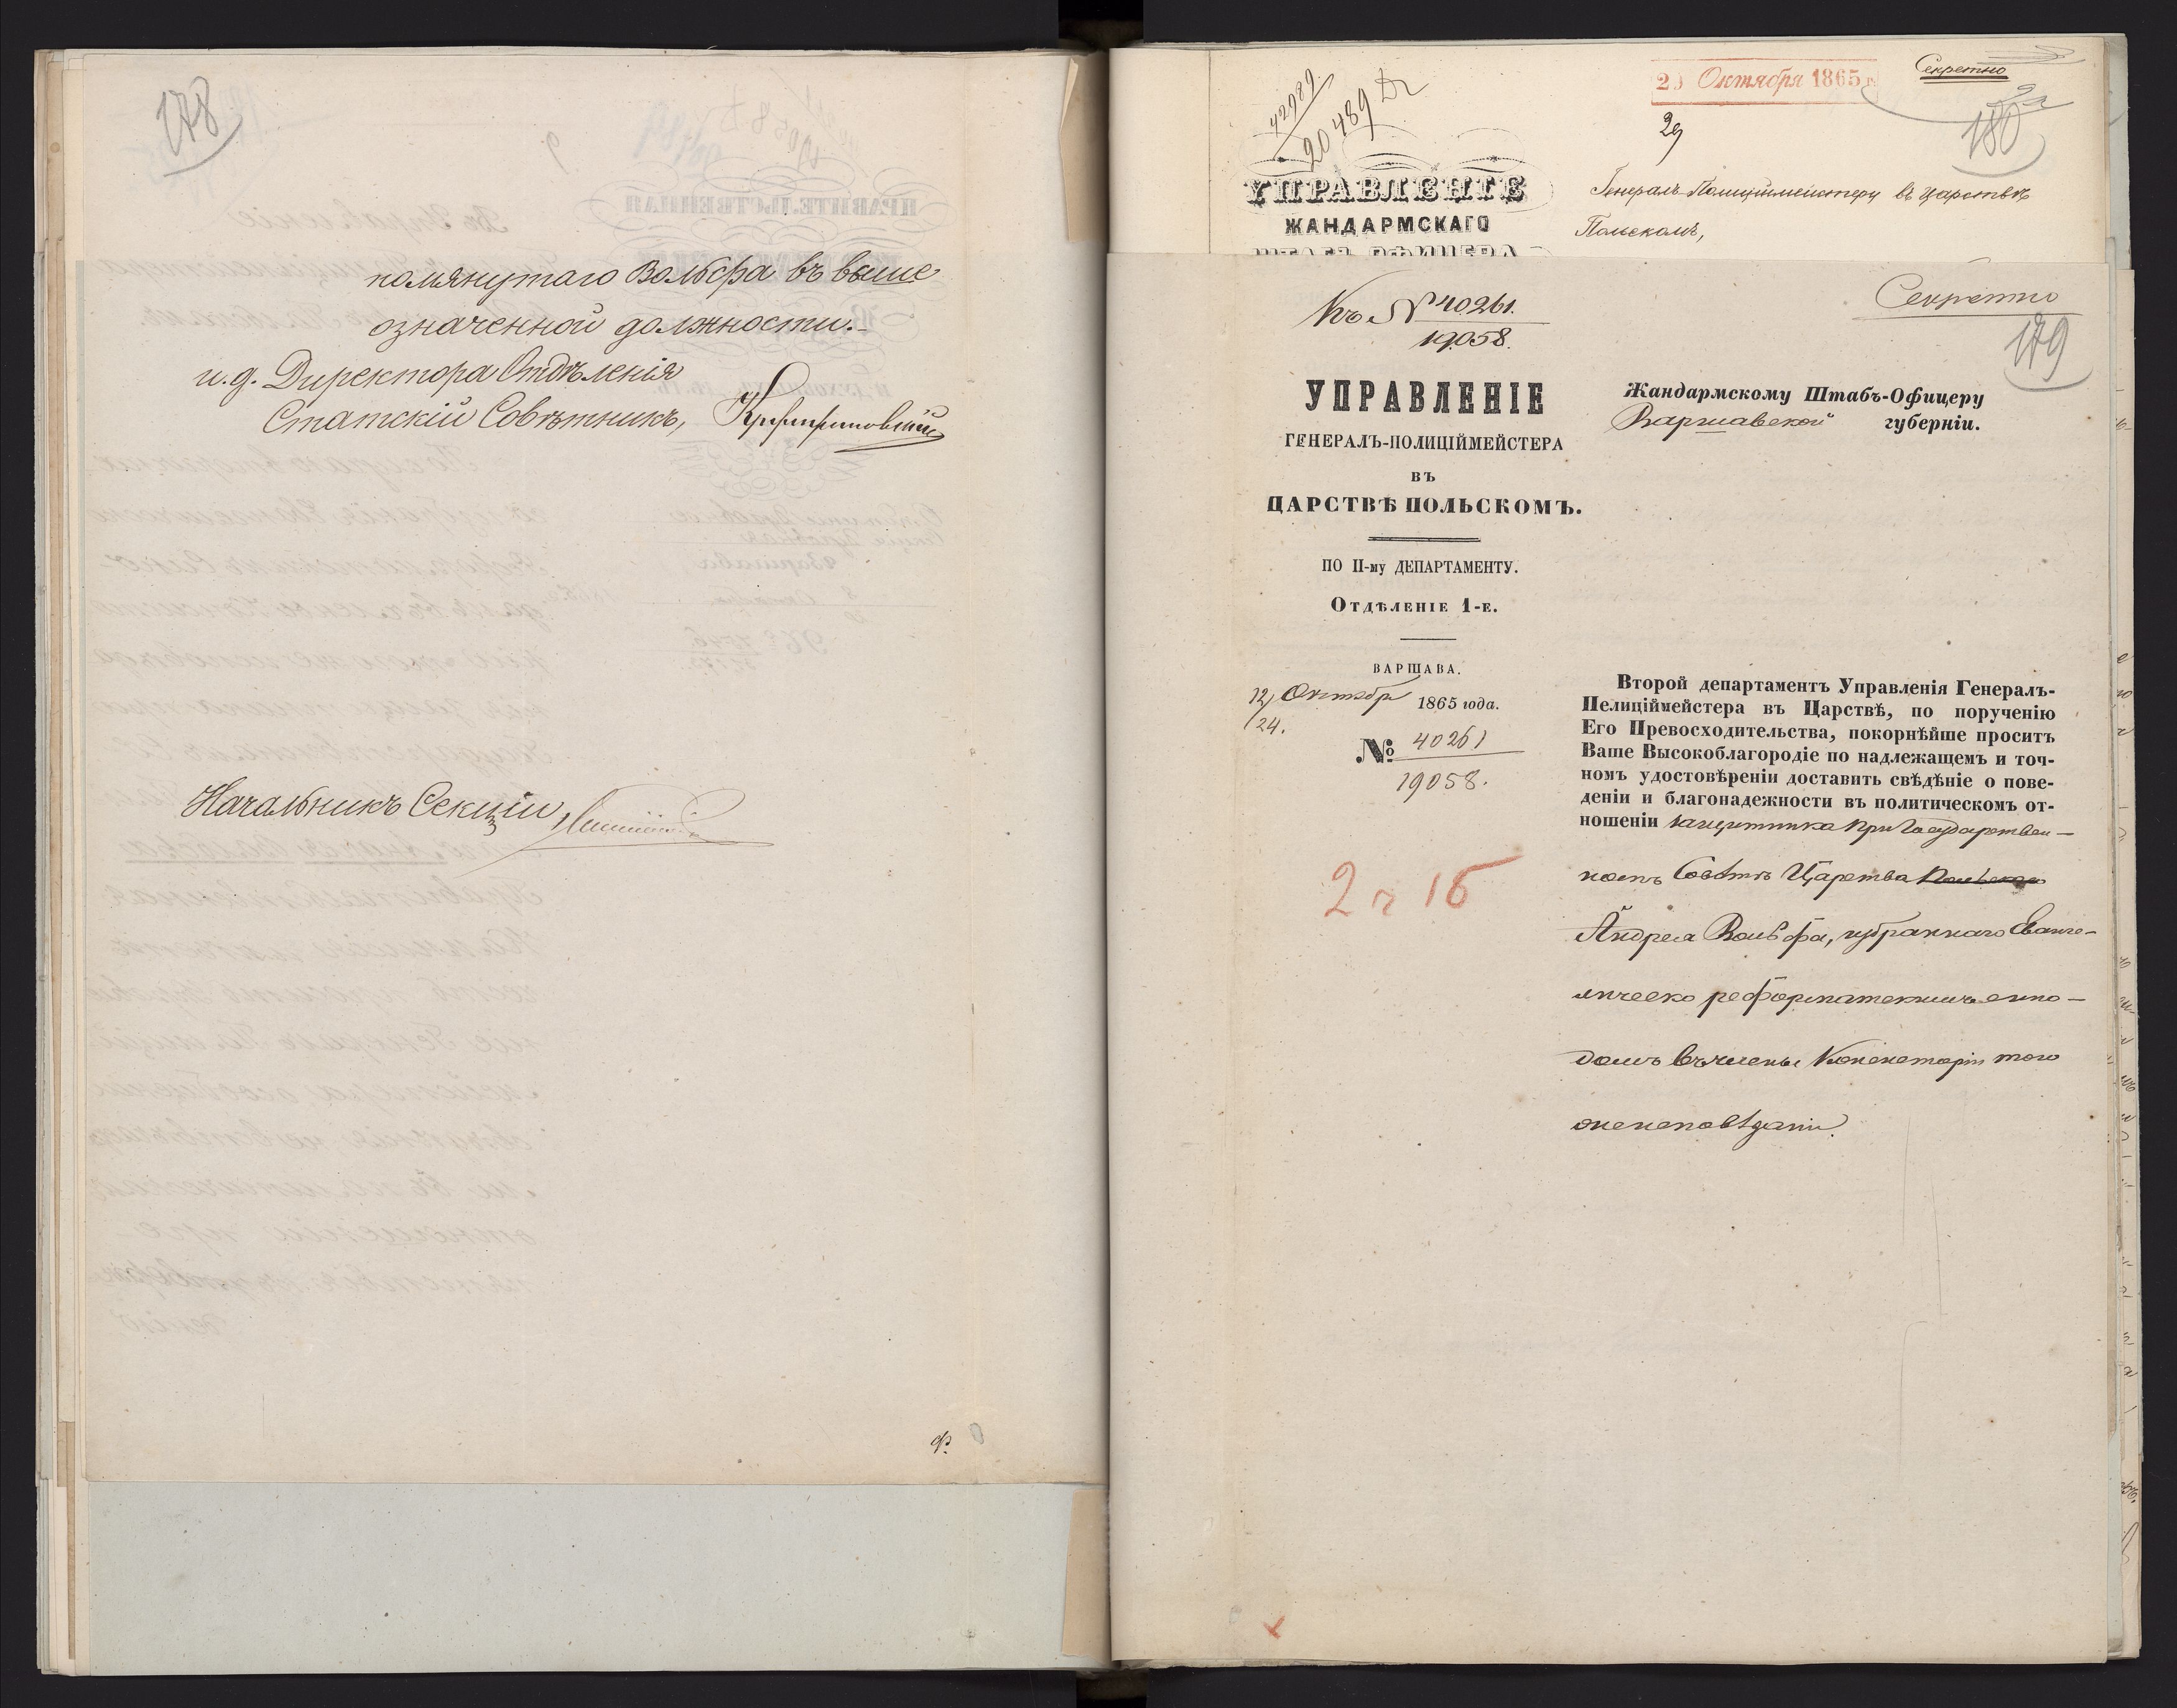 178
помянутаго Вольфа въ выше
означенной должности.-
и.д. Директора Отдѣленія
Статскій Совѣтникъ,
Начальникъ Секціи,
Ф.
42989
20489
2 Октября 1865 г.
Секретно
29
180
УПРАВЛЕНІЕ
ЖАНДАРМСКАГО
ШТАБЪ-ОФИЦЕРА
Генералъ-Полиціймейстеру въ Царствѣ
Польскомъ,
Къ № 40261.
19058.
Секретно
179
УПРАВЛЕНІЕ
ГЕНЕРАЛЪ-ПОЛИЦІЙМЕЙСТЕРА
ВЪ
ЦАРСТВѢ ПОЛЬСКОМЪ.
ПО II-му ДЕПАРТАМЕНТУ.
Отдѣленіе 1-е.
ВАРШАВА.
12/24. Октябр 1865 года.
№ 40261
19058.
2 ч 15
Жандармскому Штабъ-Офицеру
Варшавской губерніи.
Второй департаментъ Управленія Генералъ-
Пелиціймейстера въ Царствѣ, по порученію
Его Превосходительства, покорнѣйше проситъ
Ваше Высокоблагородіе по надлежащемъ и точ-
номъ удостовѣреніи доставить свѣдѣніе о пове-
деніи и благонадежности въ политическомъ от-
ношеніи защитника при Государствен-
номъ Совѣтѣ Царства Польскаго
Андрея Вольфа, избраннаго Еванге-
лическо реформатскимъ сино-
домъ въ члены Консисторіи того
же исповѣданія.